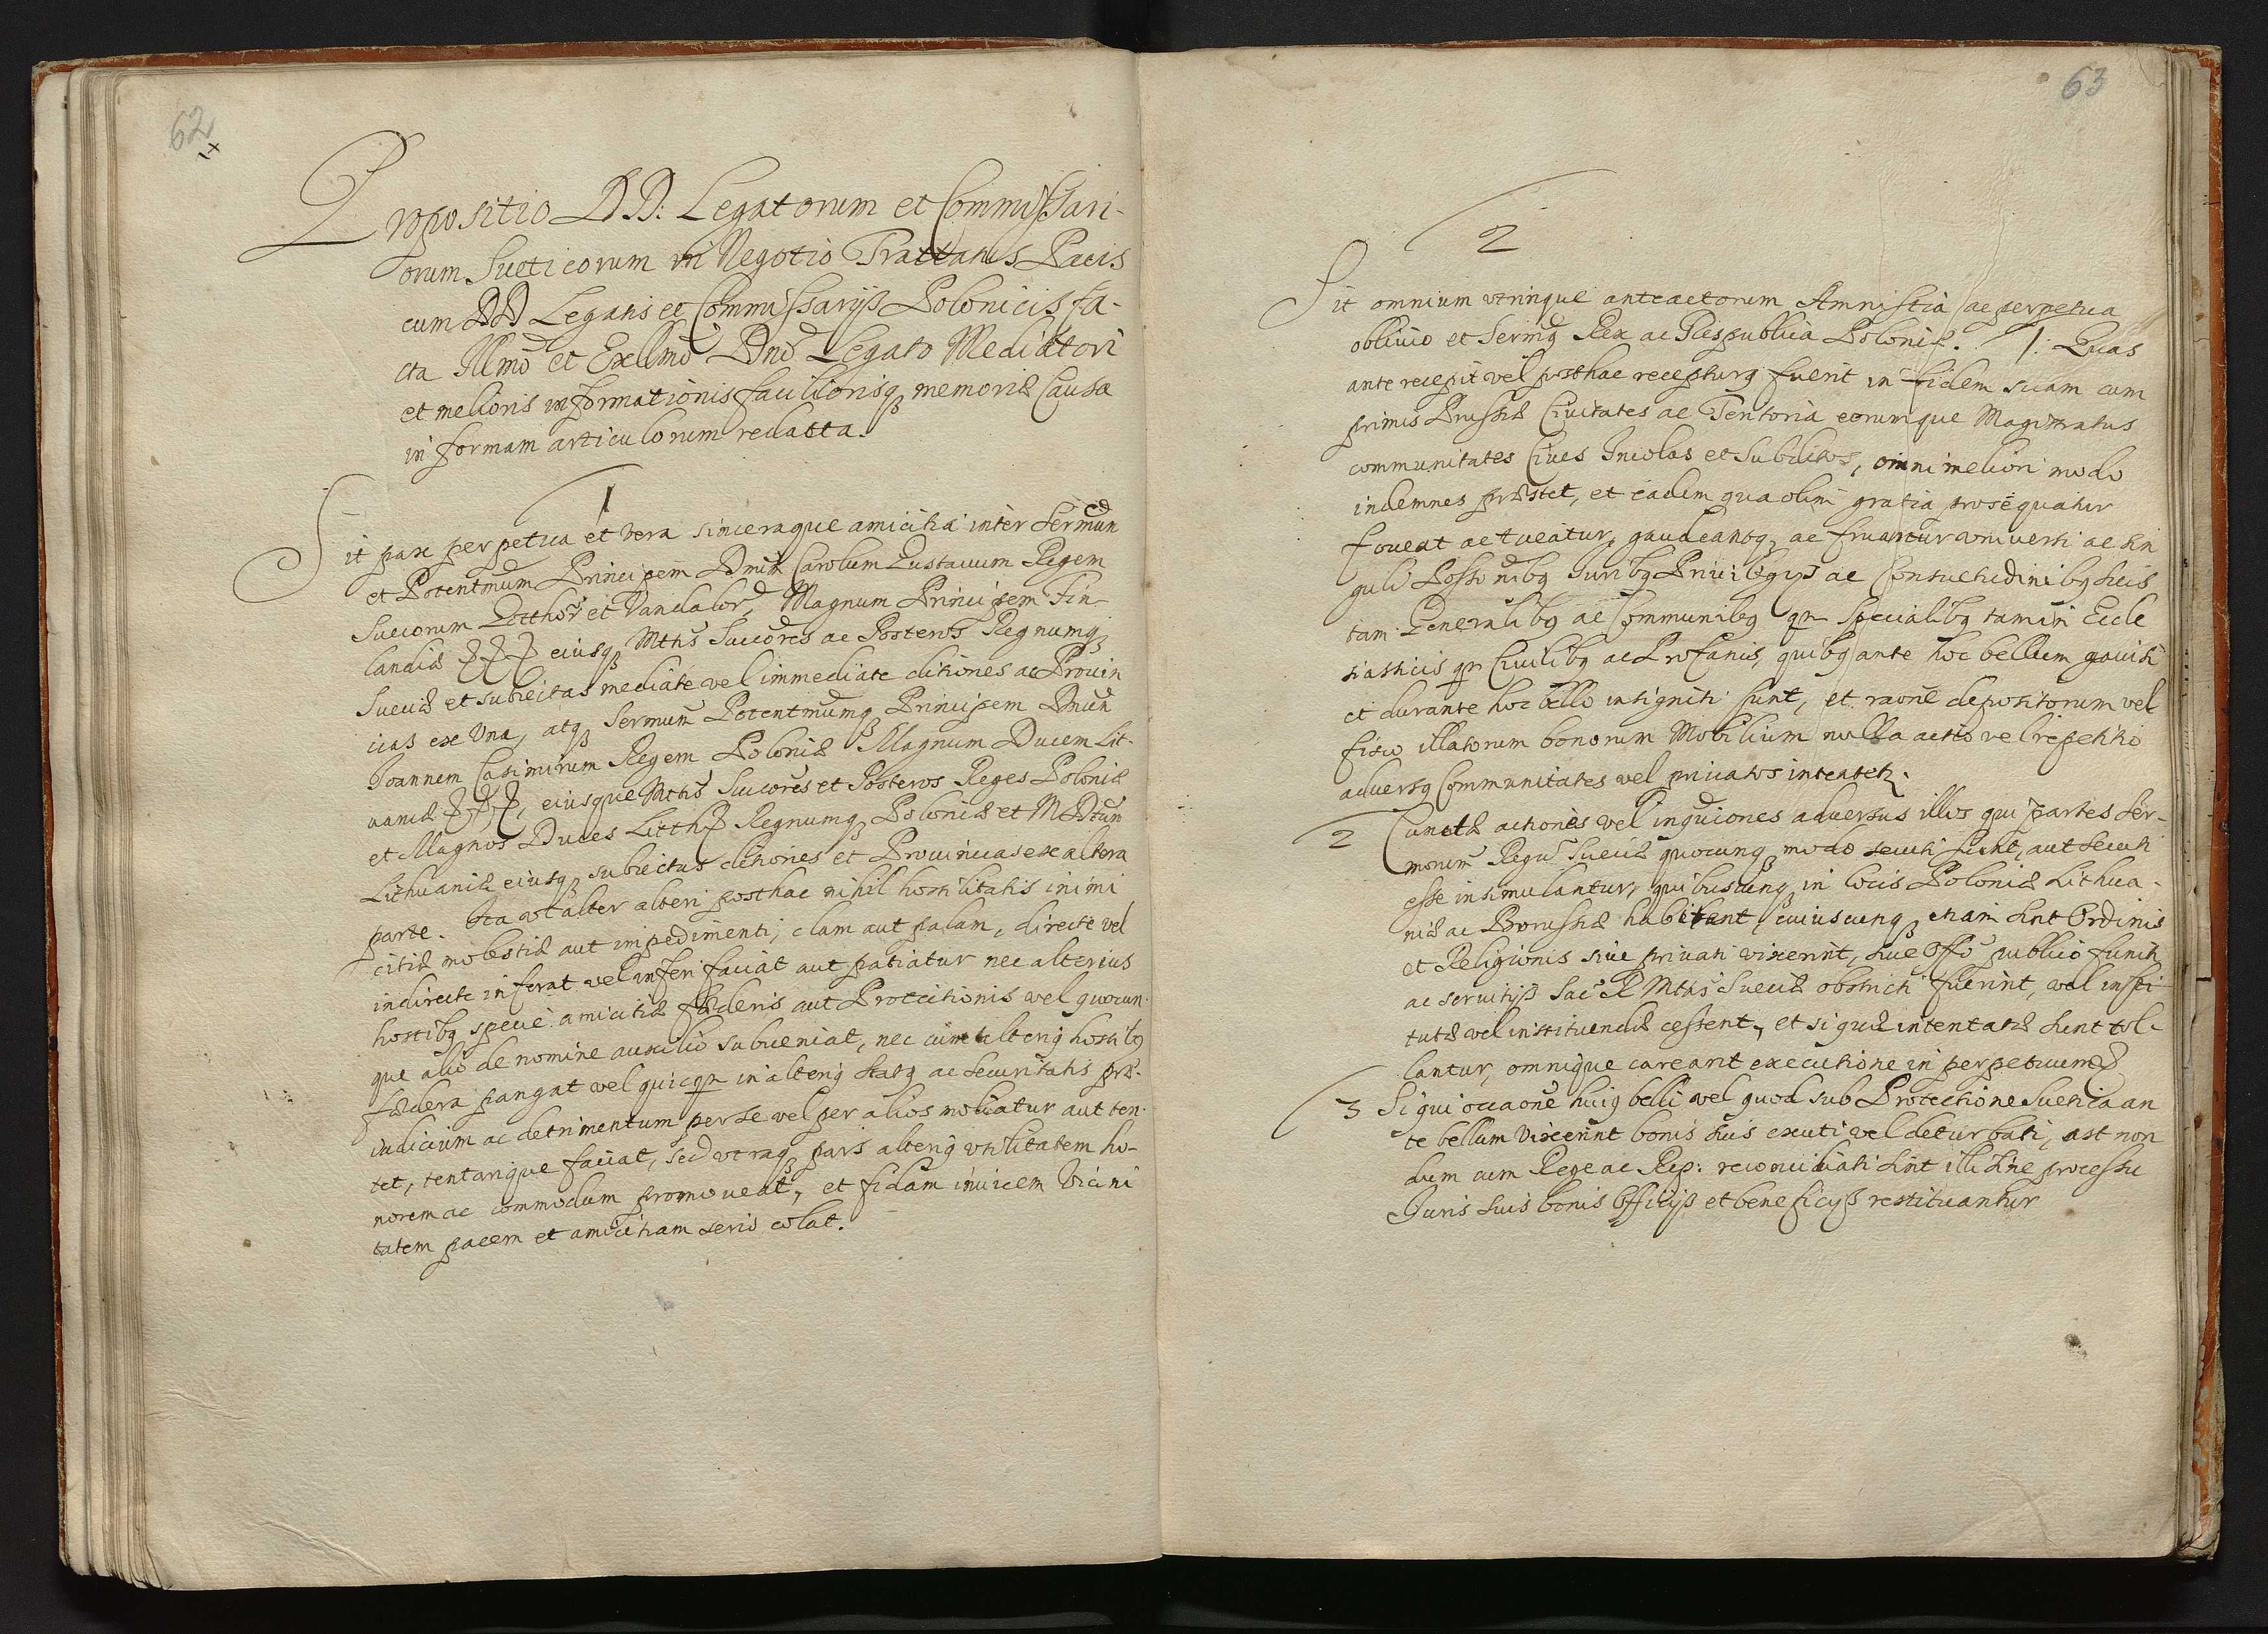 62
Propositio DD: Legatorum et Commissari-
orum Sueticorum in Negotio Tractatus Pacis
cum DD Legatis et Commissarijs Polonicis fa-
cta Illmo et Exllmo Dno Legato Mediatori
et melioris informationis faciliorisq memoriæ Causa
in formam articulorum redacta.
1
Sit pax perpetua et vera sinceraque amicitia inter Sermum
et Potentmum Principem Dnum Carolum Gustauum Regem
Suecorum Gotthor et Vandalor, Magnum Principem Fin-
landiæ &&& eiusq Mttis Succores ac Posteros Regnumq
Sueciæ et subiectas mediate vel immediate ditiones ac Prouin
cias ex Vna, atq Sermum Potentmumq Principem Dnum
Joannem Casimirum Regem Poloniæ Magnum Ducem Lit-
uaniæ &&&, eiusque Mttis Succores et Posteros Reges Poloniæ
et Magnos Duces Litth& Regnumq Poloniæ et M Dtum
Lithuaniæ eiusq subiectas ditiones et Prouincias ex altera
parte. Ita vt alter alteri posthac nihil hostilitatis inimi
citiæ molestiæ aut impedimenti, clam aut palam, directe vel
indirecte inferat vel inferri faciat aut patiatur nec alterius
hostibq specie amicitiæ fæderis aut Protectionis vel quocun-
que alio de nomine auxilio subueniat, nec cum alterig hostibq
fædera pangat vel quicqp in alterig statq ac securitatis præ-
iudicium ac detrimentum per se vel per alios moliatur aut ten-
tet, tentarique faciat, sed vtraq pars alterig vtilitatem ho-
norem ac commodum promoueat, et fidam inuicem Vicini
tatem pacem et amicitiam serio colat.
63
2
Sit omnium vtrinque anteactorum Amnistia ac perpetua
obliuio et Sermq Rex ac Respublica Poloniæ. 1: Quas
ante recepit vel posthac recepturq fuerit in fidem suam cum
primis Prussiæ Ciuitates ac Territoria eorumque Magistratus
communitates Ciues Incolas et Subditos, omni meliori modo
indemnes præstet, et eadem qua olim gratia prosequatur
foueat ac tueatur, gaudeantq, ac fruantur vniuersi ac sin
guli Possonibq Juribq Priuilegijs ac Consuetudinibq suis
tam Generalibq ac Communibq qp Specialibq tam in Eccle
siasticis qp Ciuilibq ac Profanis, quibq ante hoc bellum gauisi
et durante hoc bello insigniti sunt, et raone depositorum vel
fisco illatorum bonorum Mobilium nulla actio vel repetitio
adversq Communitates vel priuatos intentetr.
2 Cunctæ actiones vel inquiones aduersus illos qui partes Ser-
morum Regu Sueciæ quocunq modo secuti sunt, aut secuti
esse insimulantur, quibuscunq in locis Poloniæ Lithua-
niæ ac Borussiæ habitent, cuiuscunq etiam sint Ordinis
et Religionis siue priuati vixerint, siue Offo publico functi
ac seruitijs Sac R Mttis Sueciæ obstricti fuerint, vel insti-
tutæ vel instituendæ cessent, et si quæ intentatæ sunt tol-
lantur, omnique careant executione in perpetuum&
3 Si qui occaone huig belli vel quod sub Protectione Suetica an
te bellum vixerint bonis suis exuti vel deturbati, ast non
dum cum Rege ac Rep: reconciliati sint illi sine processu
Juris suis bonis Officijs et beneficijs restituantur